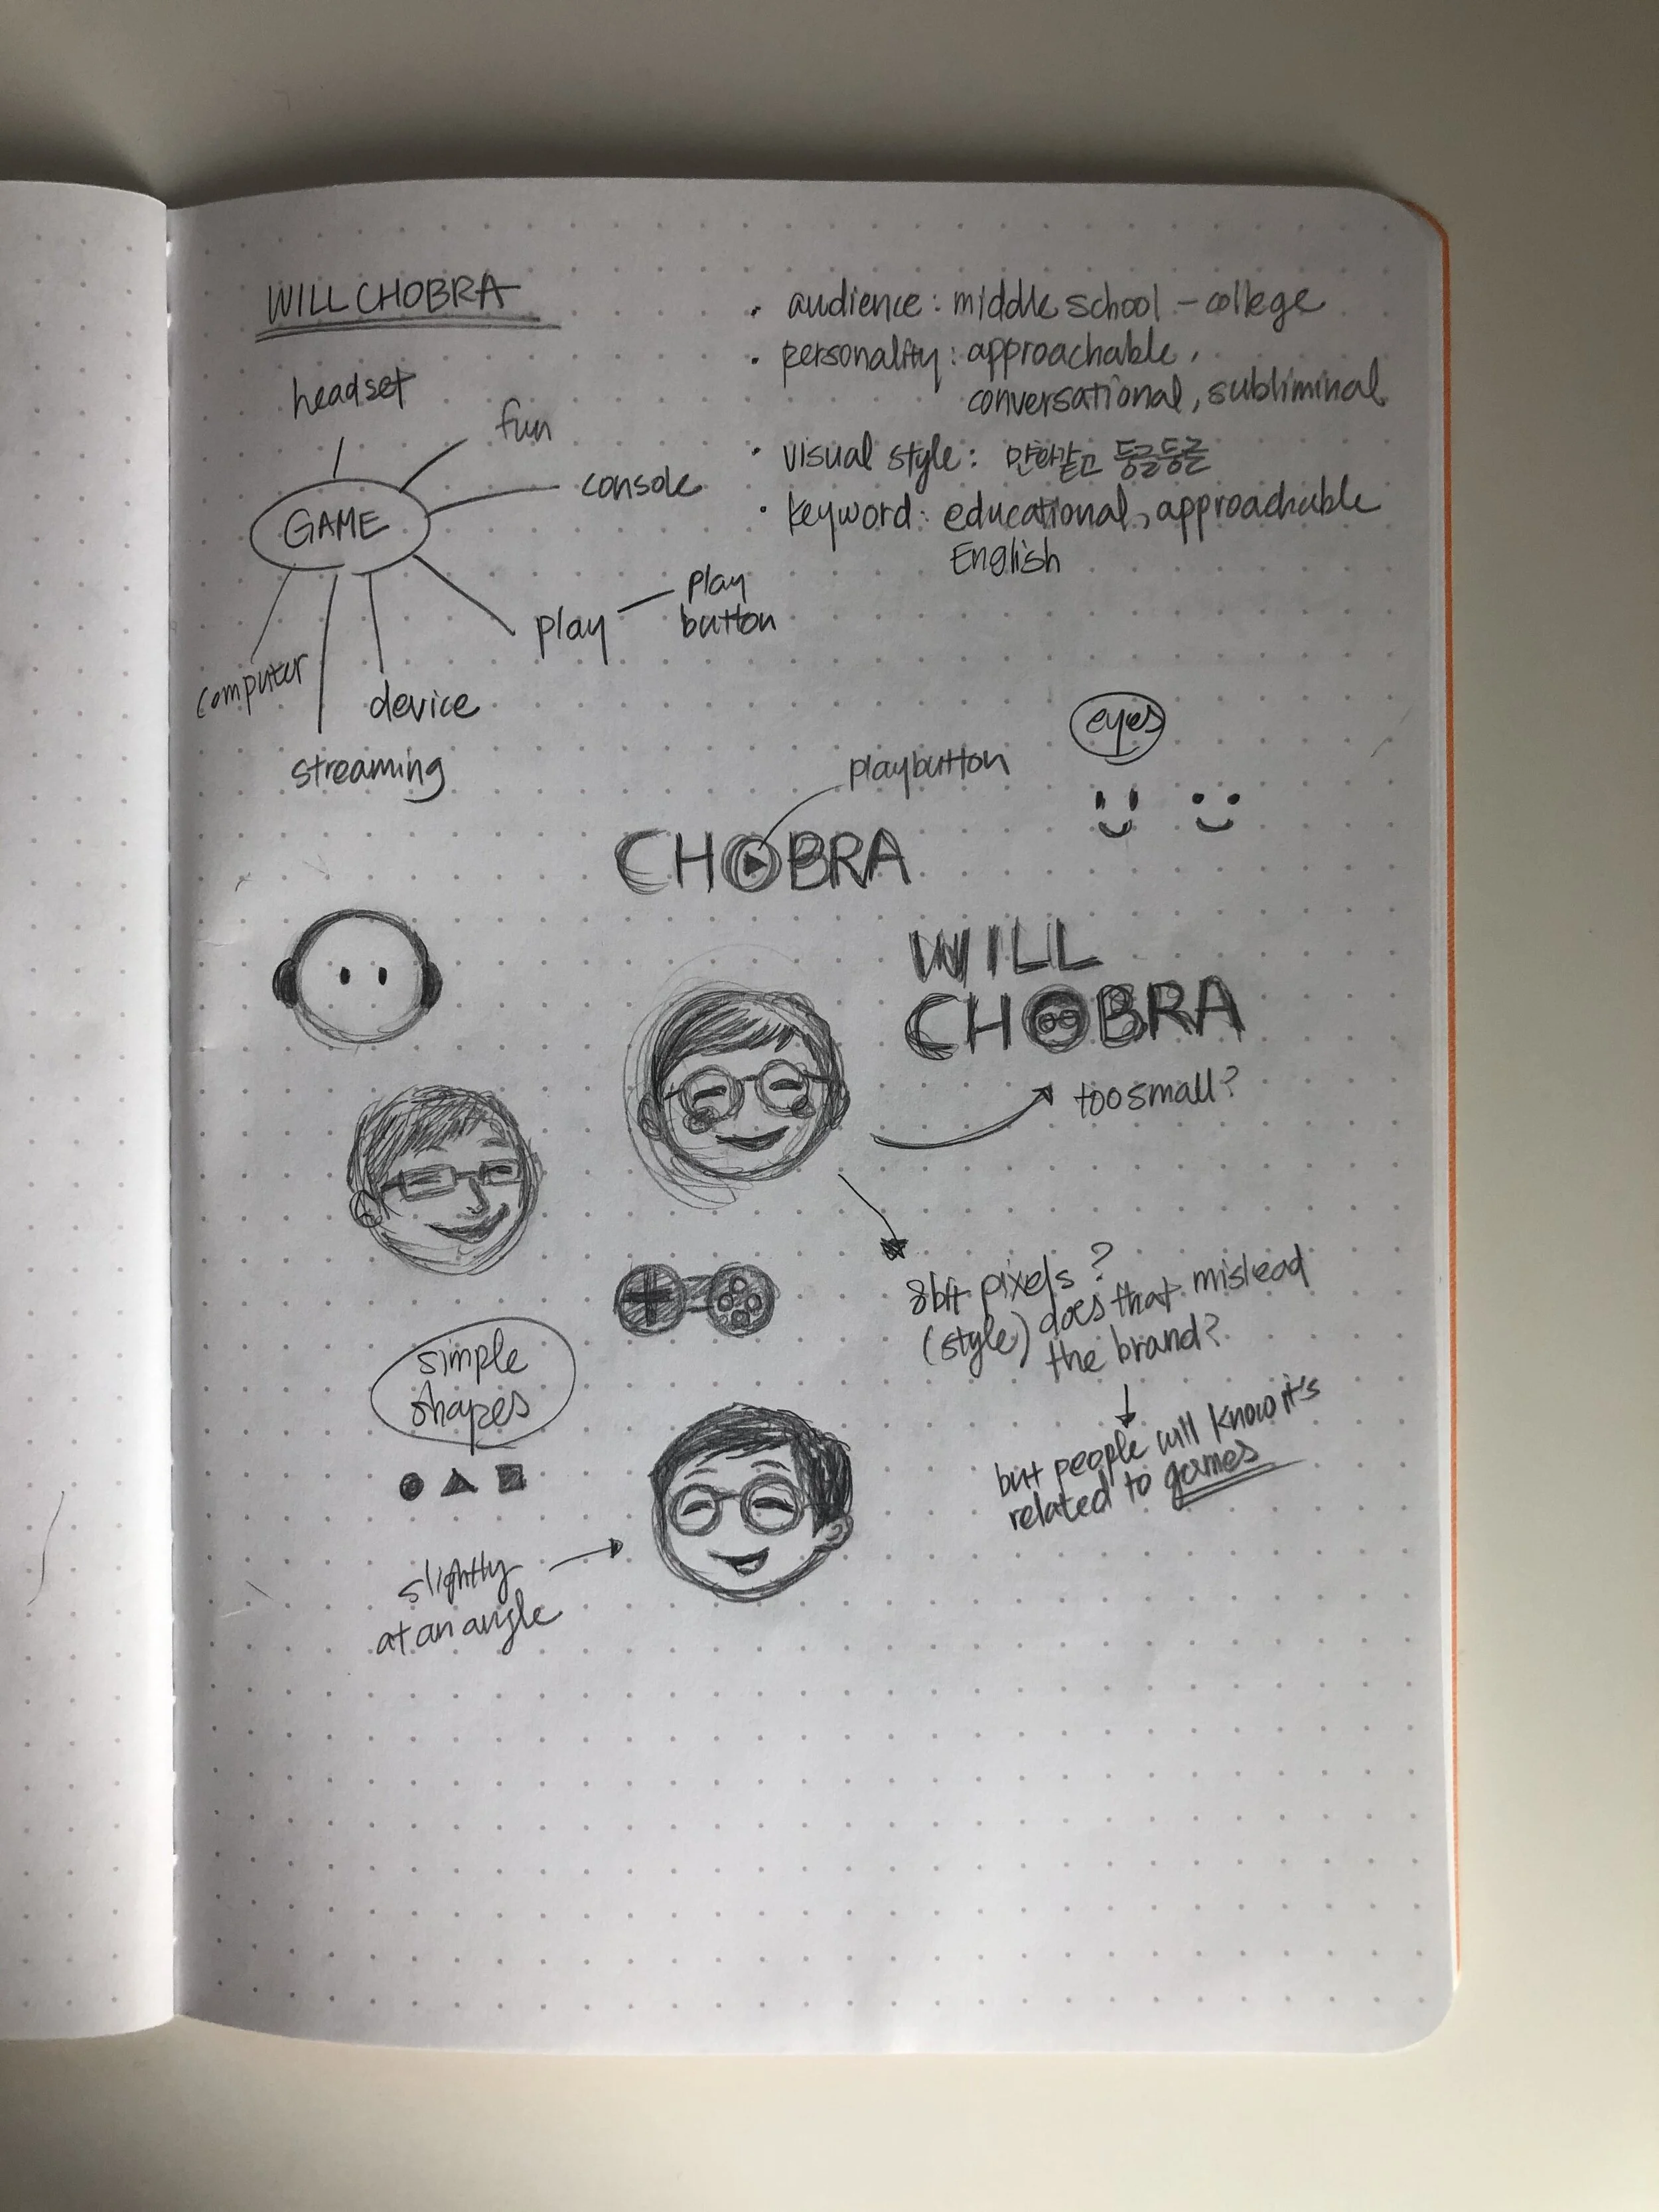 WILL CHOBRA
headset
fun
console
GAME
play
play
button
computer
device
streaming
• audience : middle school - college
• personality : approachable,
conversational, subliminal
• visual style : 만화같고 둥글둥글
• keyword : educational, approachable
English
eyes
playbutton
CHOBRA
WILL
CHOBRA
too small?
8bit pixels?
(style) does that mislead
the brand?
but people will know it's
related to games
simple
shapes
slightly
at an angle